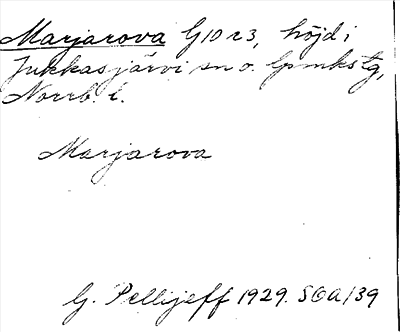 Marjarova G10 r3, höjd i
Jukkasjärvi sn o. lpmkstg,
Norrb. l.
Marjarova
G. Pellijeff 1929. SOA/39